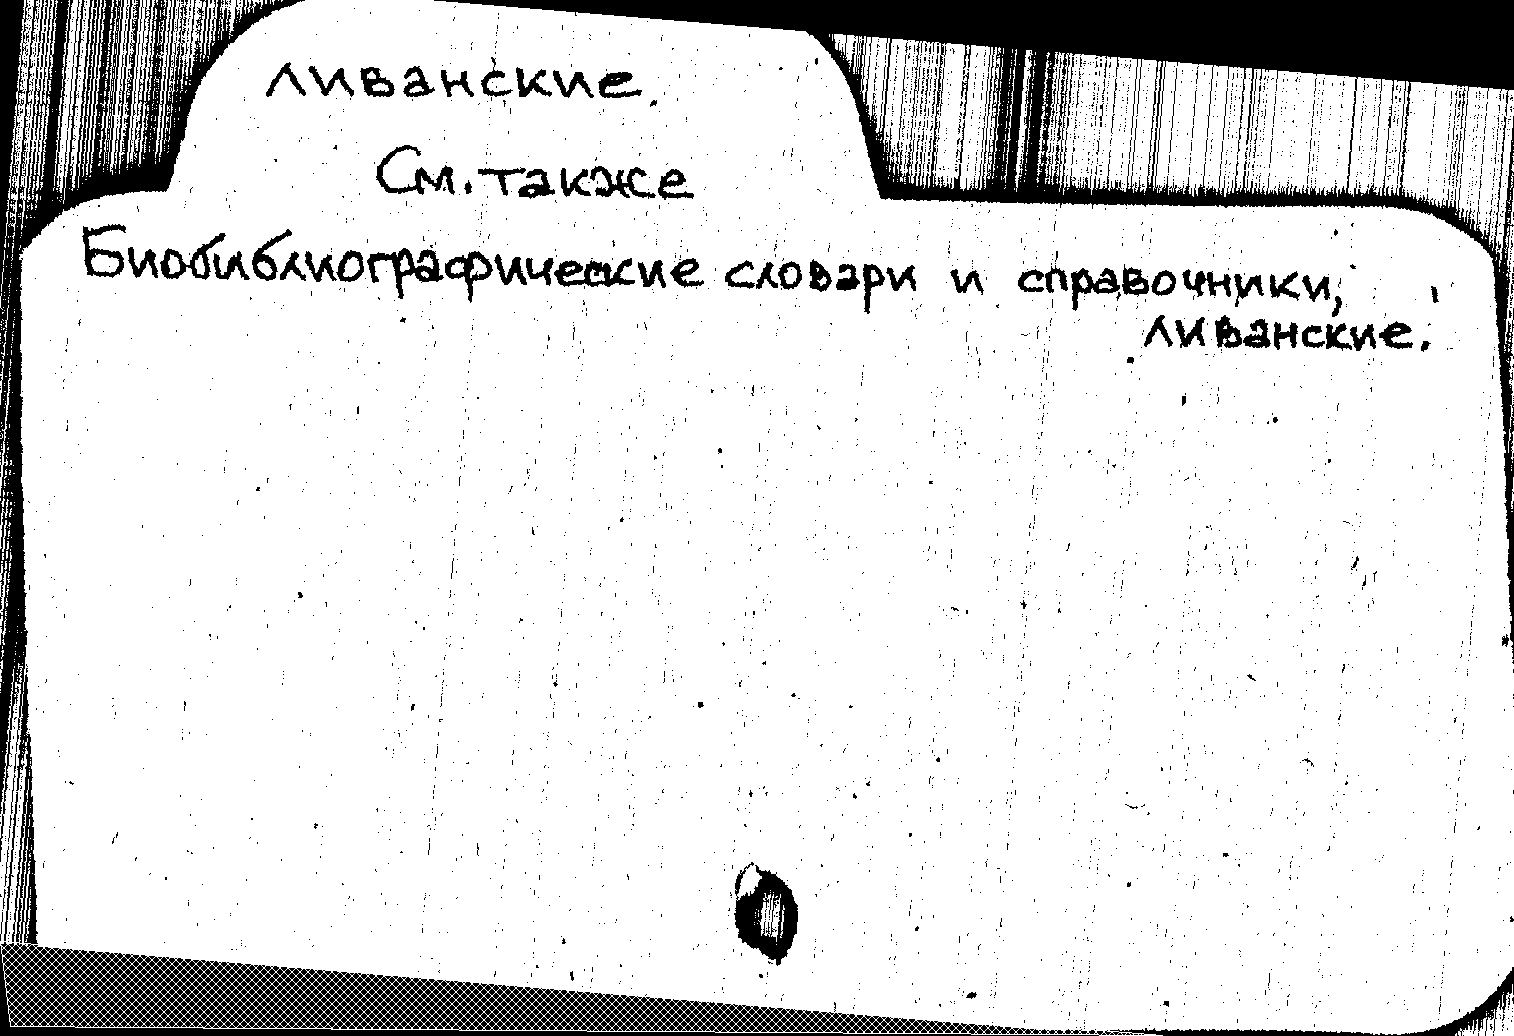 ливанские.
См. также
Биобиблиографические словари и справочники,
ливанские.